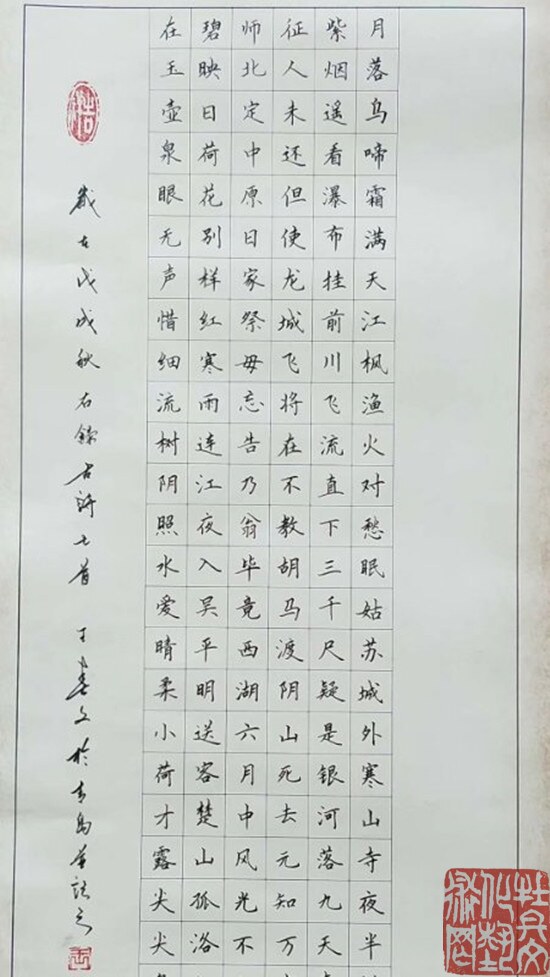 月落乌啼霜满天江枫渔火对愁眠姑苏城外寒山寺夜半
紫烟遥看瀑布挂前川飞流直下三千尺疑是银河落九天
征人未还但使龙城飞将在不教胡马渡阴山死去元知万
师北定中原日家祭毋忘告乃翁毕竟西湖六月中风光不
碧映日荷花别样红寒雨连江夜入吴平明送客楚山孤洛
在玉壶泉眼无声惜细流树阴照水爱晴柔小荷才露尖尖
歲在戊戌秋右錄古诗七首 王春文於青岛